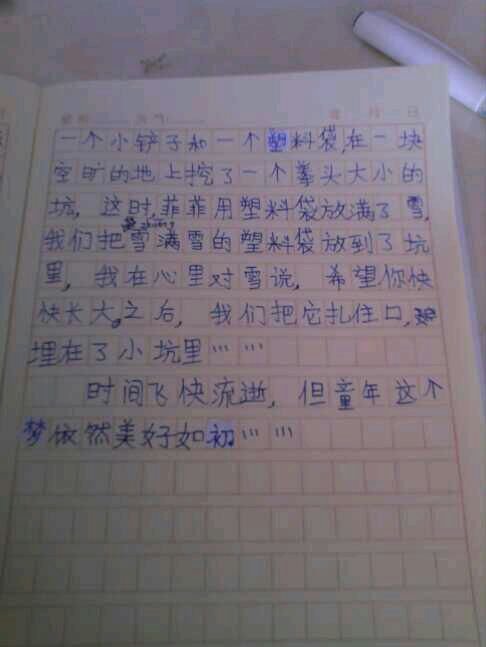 年 月 日
一个小铲子和一个塑料袋,在一块
空旷的地上挖了一个拳头大小的
坑，这时,菲菲用塑料袋放满了雪,
我们把雪满雪的塑料袋放到了坑
里，我在心里对雪说，希望你快
快长大。之后，我们把它扎住口,
埋在了小坑里……
时间飞快流逝，但童年这个
梦依然美好如初……